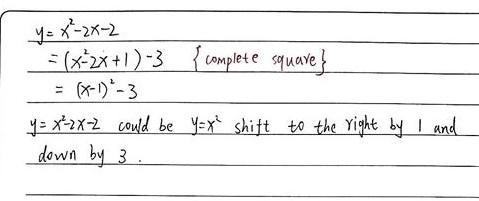 y = x²-2x-2
= (x²-2x+1)-3 {complete square}
= (x-1)²-3
y = x²-2x-2 could be y=x² shift to the right by 1 and
down by 3.